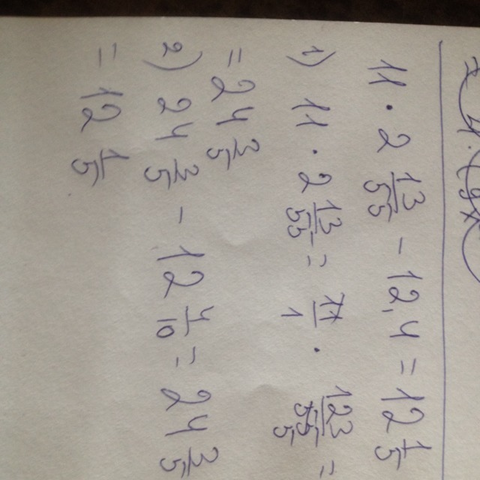 11 · 2 13/55 - 12,4 = 12 1/5
1) 11 · 2 13/55 = 11/1 · 123/55 =
= 24 3/5
2) 24 3/5 - 12 4/10 = 24 3/5
= 12 1/5